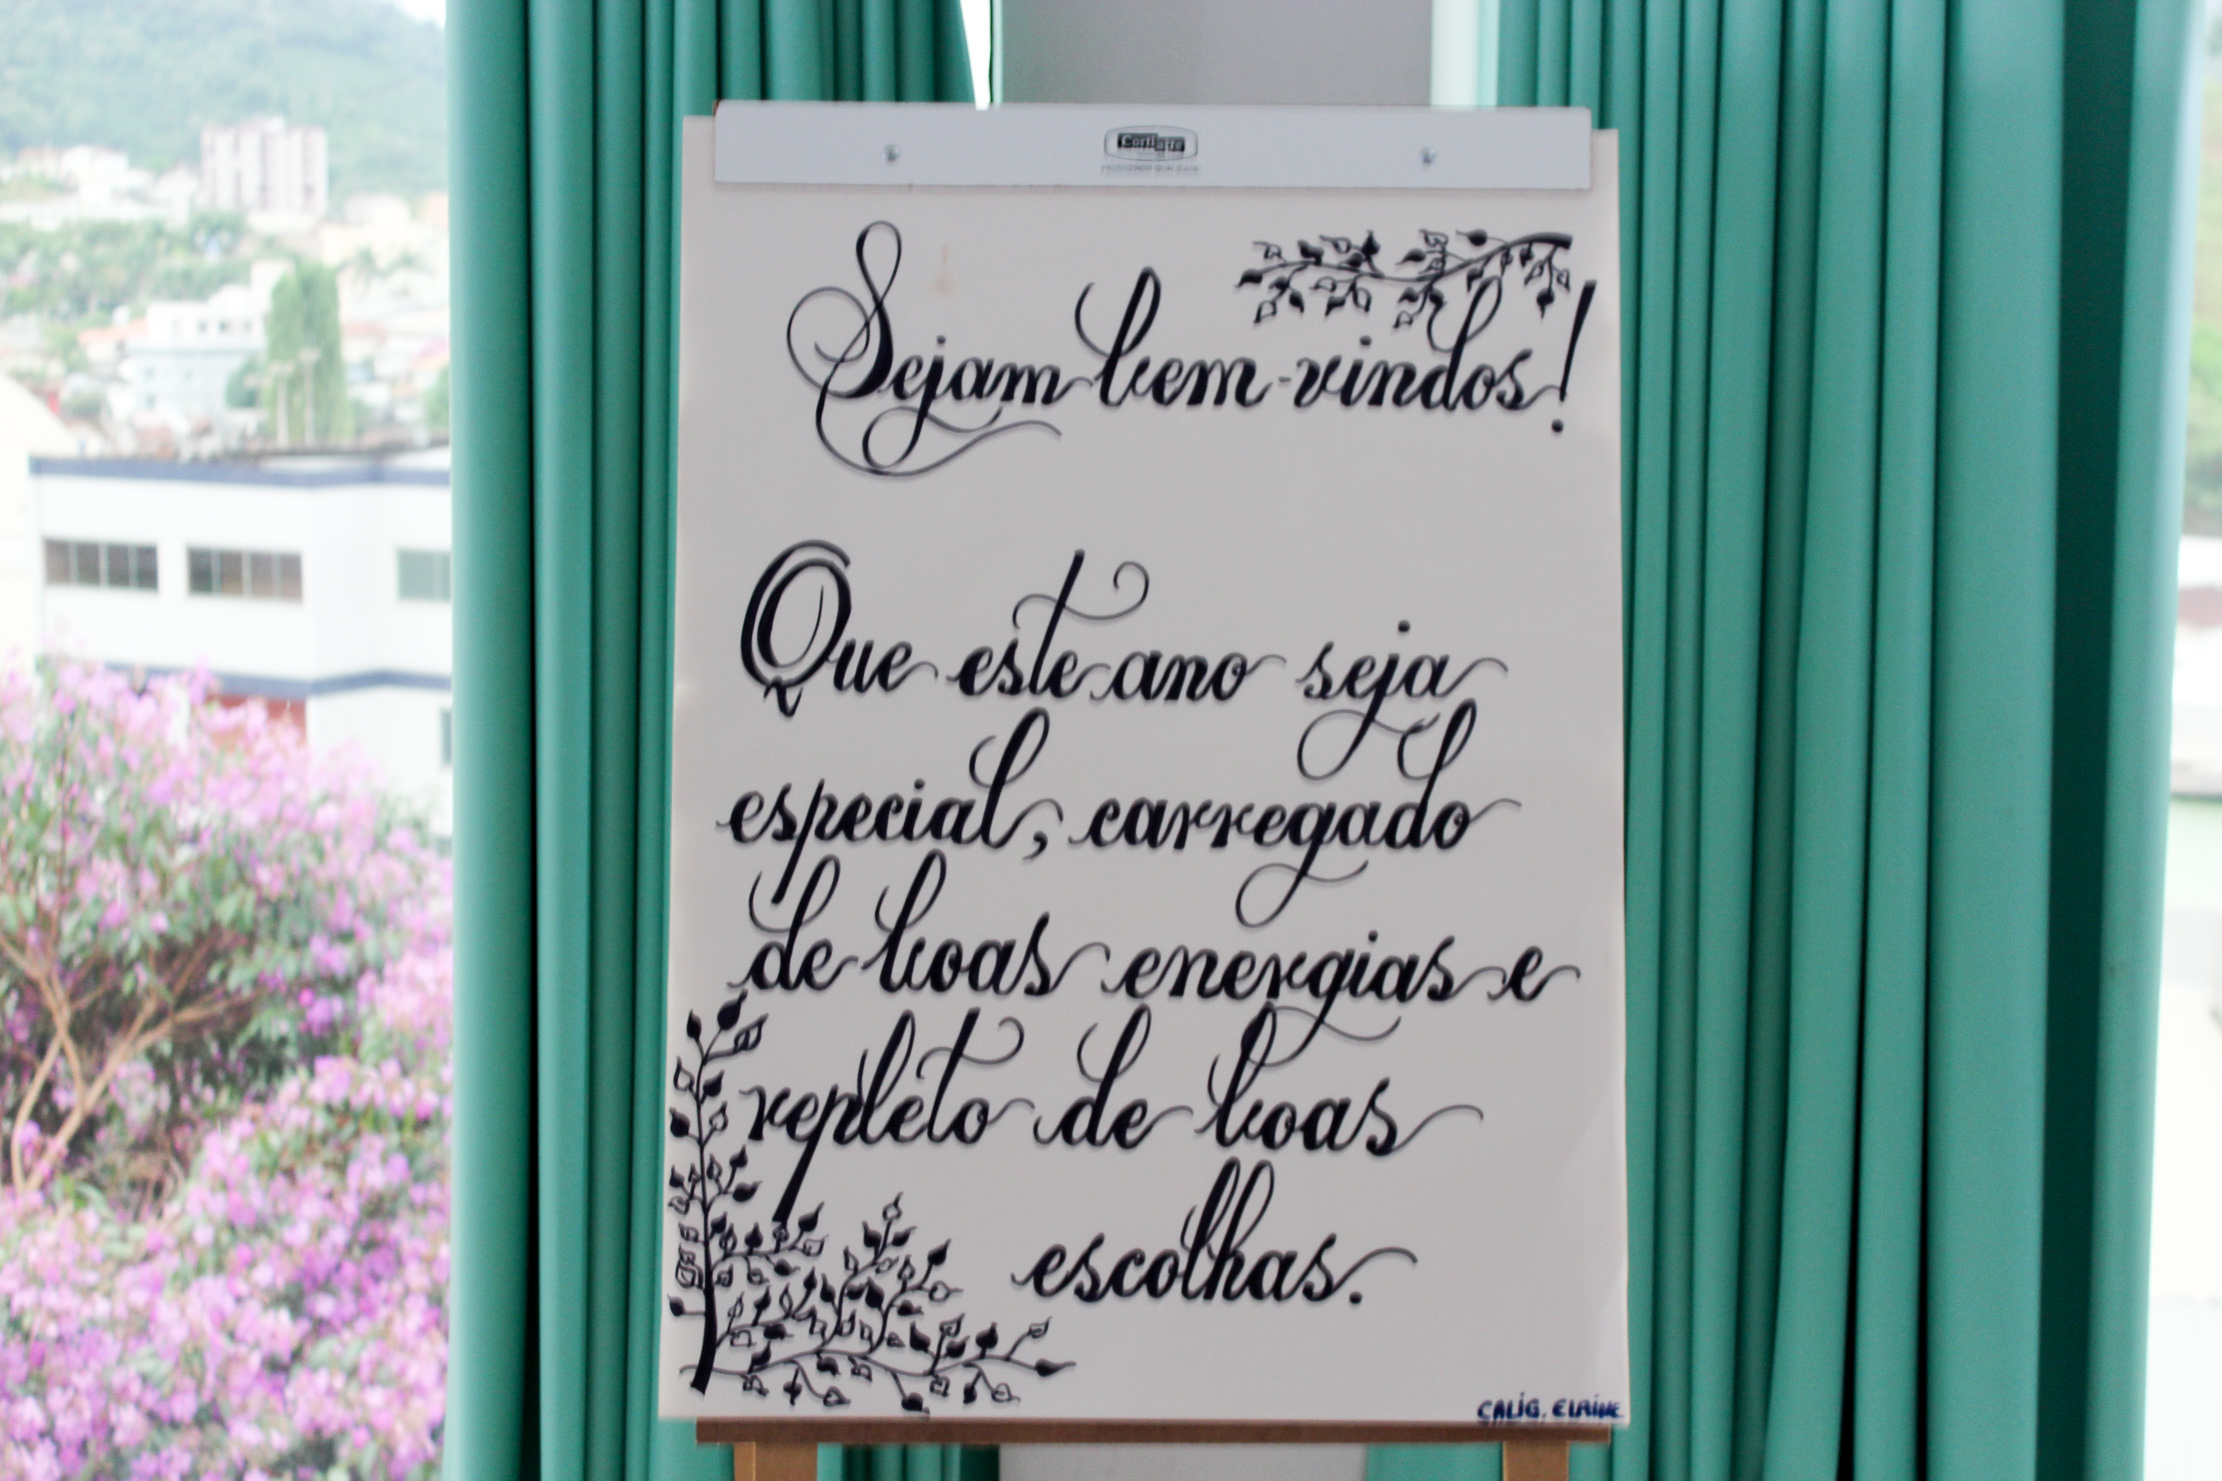 Cortiarte
PRODUZINDO QUALIDADE
Sejam bem-vindos!
Que este ano seja
especial, carregado
de boas energias e
repleto de boas
escolhas.
CALIG. ELAINE